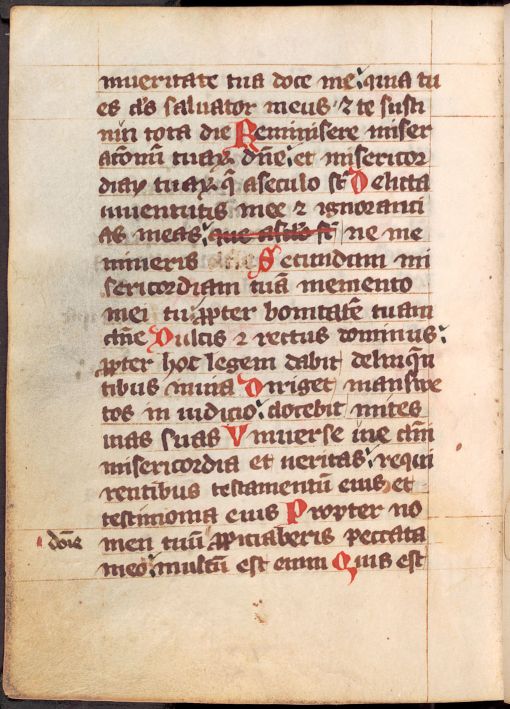 in ueritate tua doce me quia tu
es ds saluator meus ⁊ te susti
nui tota die Reminisere miser
atōnū tuaꝝ dn̄e et misericor
diaꝝ tuaꝝ q̄ a seculo st̄ Delicta
iuuentutis mee ⁊ ignoranci
as meas que a sclo st̄ ne me
mineris Secundum mi
sericordiam tuā memento
mei tu ꝓpter bonitatē tuam
dn̄e Dulcis ⁊ rectus dominus
ꝓpter hoc legem dabit delinqn̄
tibus in uia Diriget mansue
tos in iudicio docebit mites
uias suas Vniuerse uie dn̄i
misericordia et ueritas requi
rentibus testamentū eius et
testimonia eius Propter no
dn̄e men tuū ꝓpiciaberis peccata
meo multū est enim Quis est